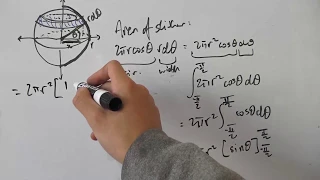 rdθ
θ
r
Area of slither:
2πrcosθ rdθ = 2πr²cosθdθ
width
∫ -π/2 π/2 2πr²cosθdθ
= 2πr² ∫ -π/2 π/2 cosθdθ
r² [sinθ] -π/2 π/2
= 2πr² [1